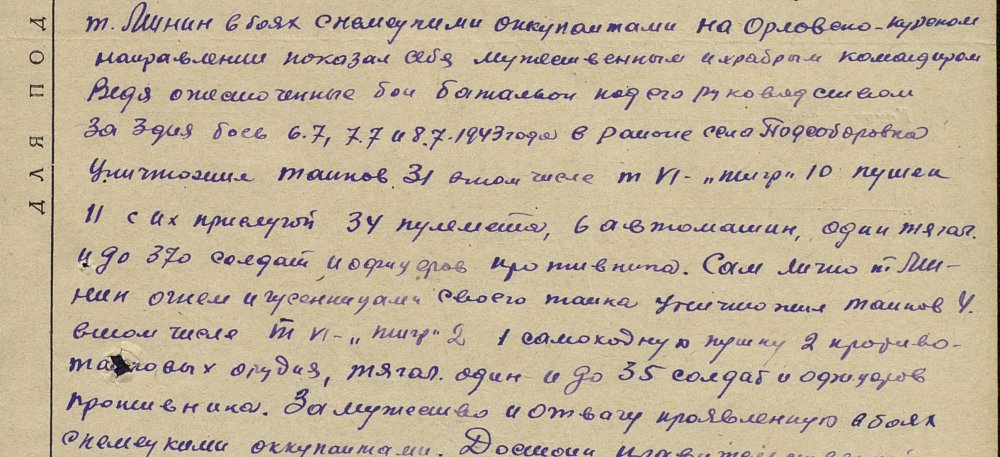 т. Минин в боях с немецкими оккупантами на Орловско-курском
направлении показал себя мужественным и храбрым командиром
Ведя ожесточенные бои батальон под его руководством
За 3 дня боев 6.7, 7.7 и 8.7.1943 года в районе села Подсоборовка
Уничтожил танков 31 в том числе т VI- „тигр" 10 пушек
11 с их прислугой 34 пулемета, 6 автомашин, один тягач.
и до 370 солдат и офицеров противника. Сам лично т Ми-
нин огнем и гусенницами своего танка уничтожил танков 4.
в том числе Т VI- „тигр" 2 1 самоходную пушку 2 противо-
танковых орудия, тягач. один и до 35 солдат и офицеров
противника. За мужество и отвагу проявленную в боях
с немецкими оккупантами. Достоин
ДЛЯ ПОД